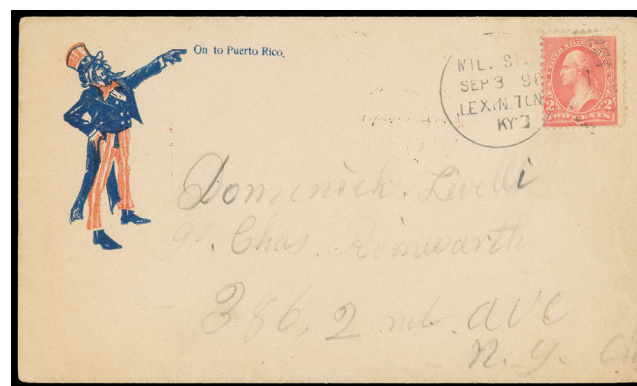 On to Puerto Rico.
MIL. ST
SEP 3 98
LEXINTON
KY
2 TWO CENTS 2
Dominick. Livelli
Chas.
386, 2 nd. ave
N. y. Ci